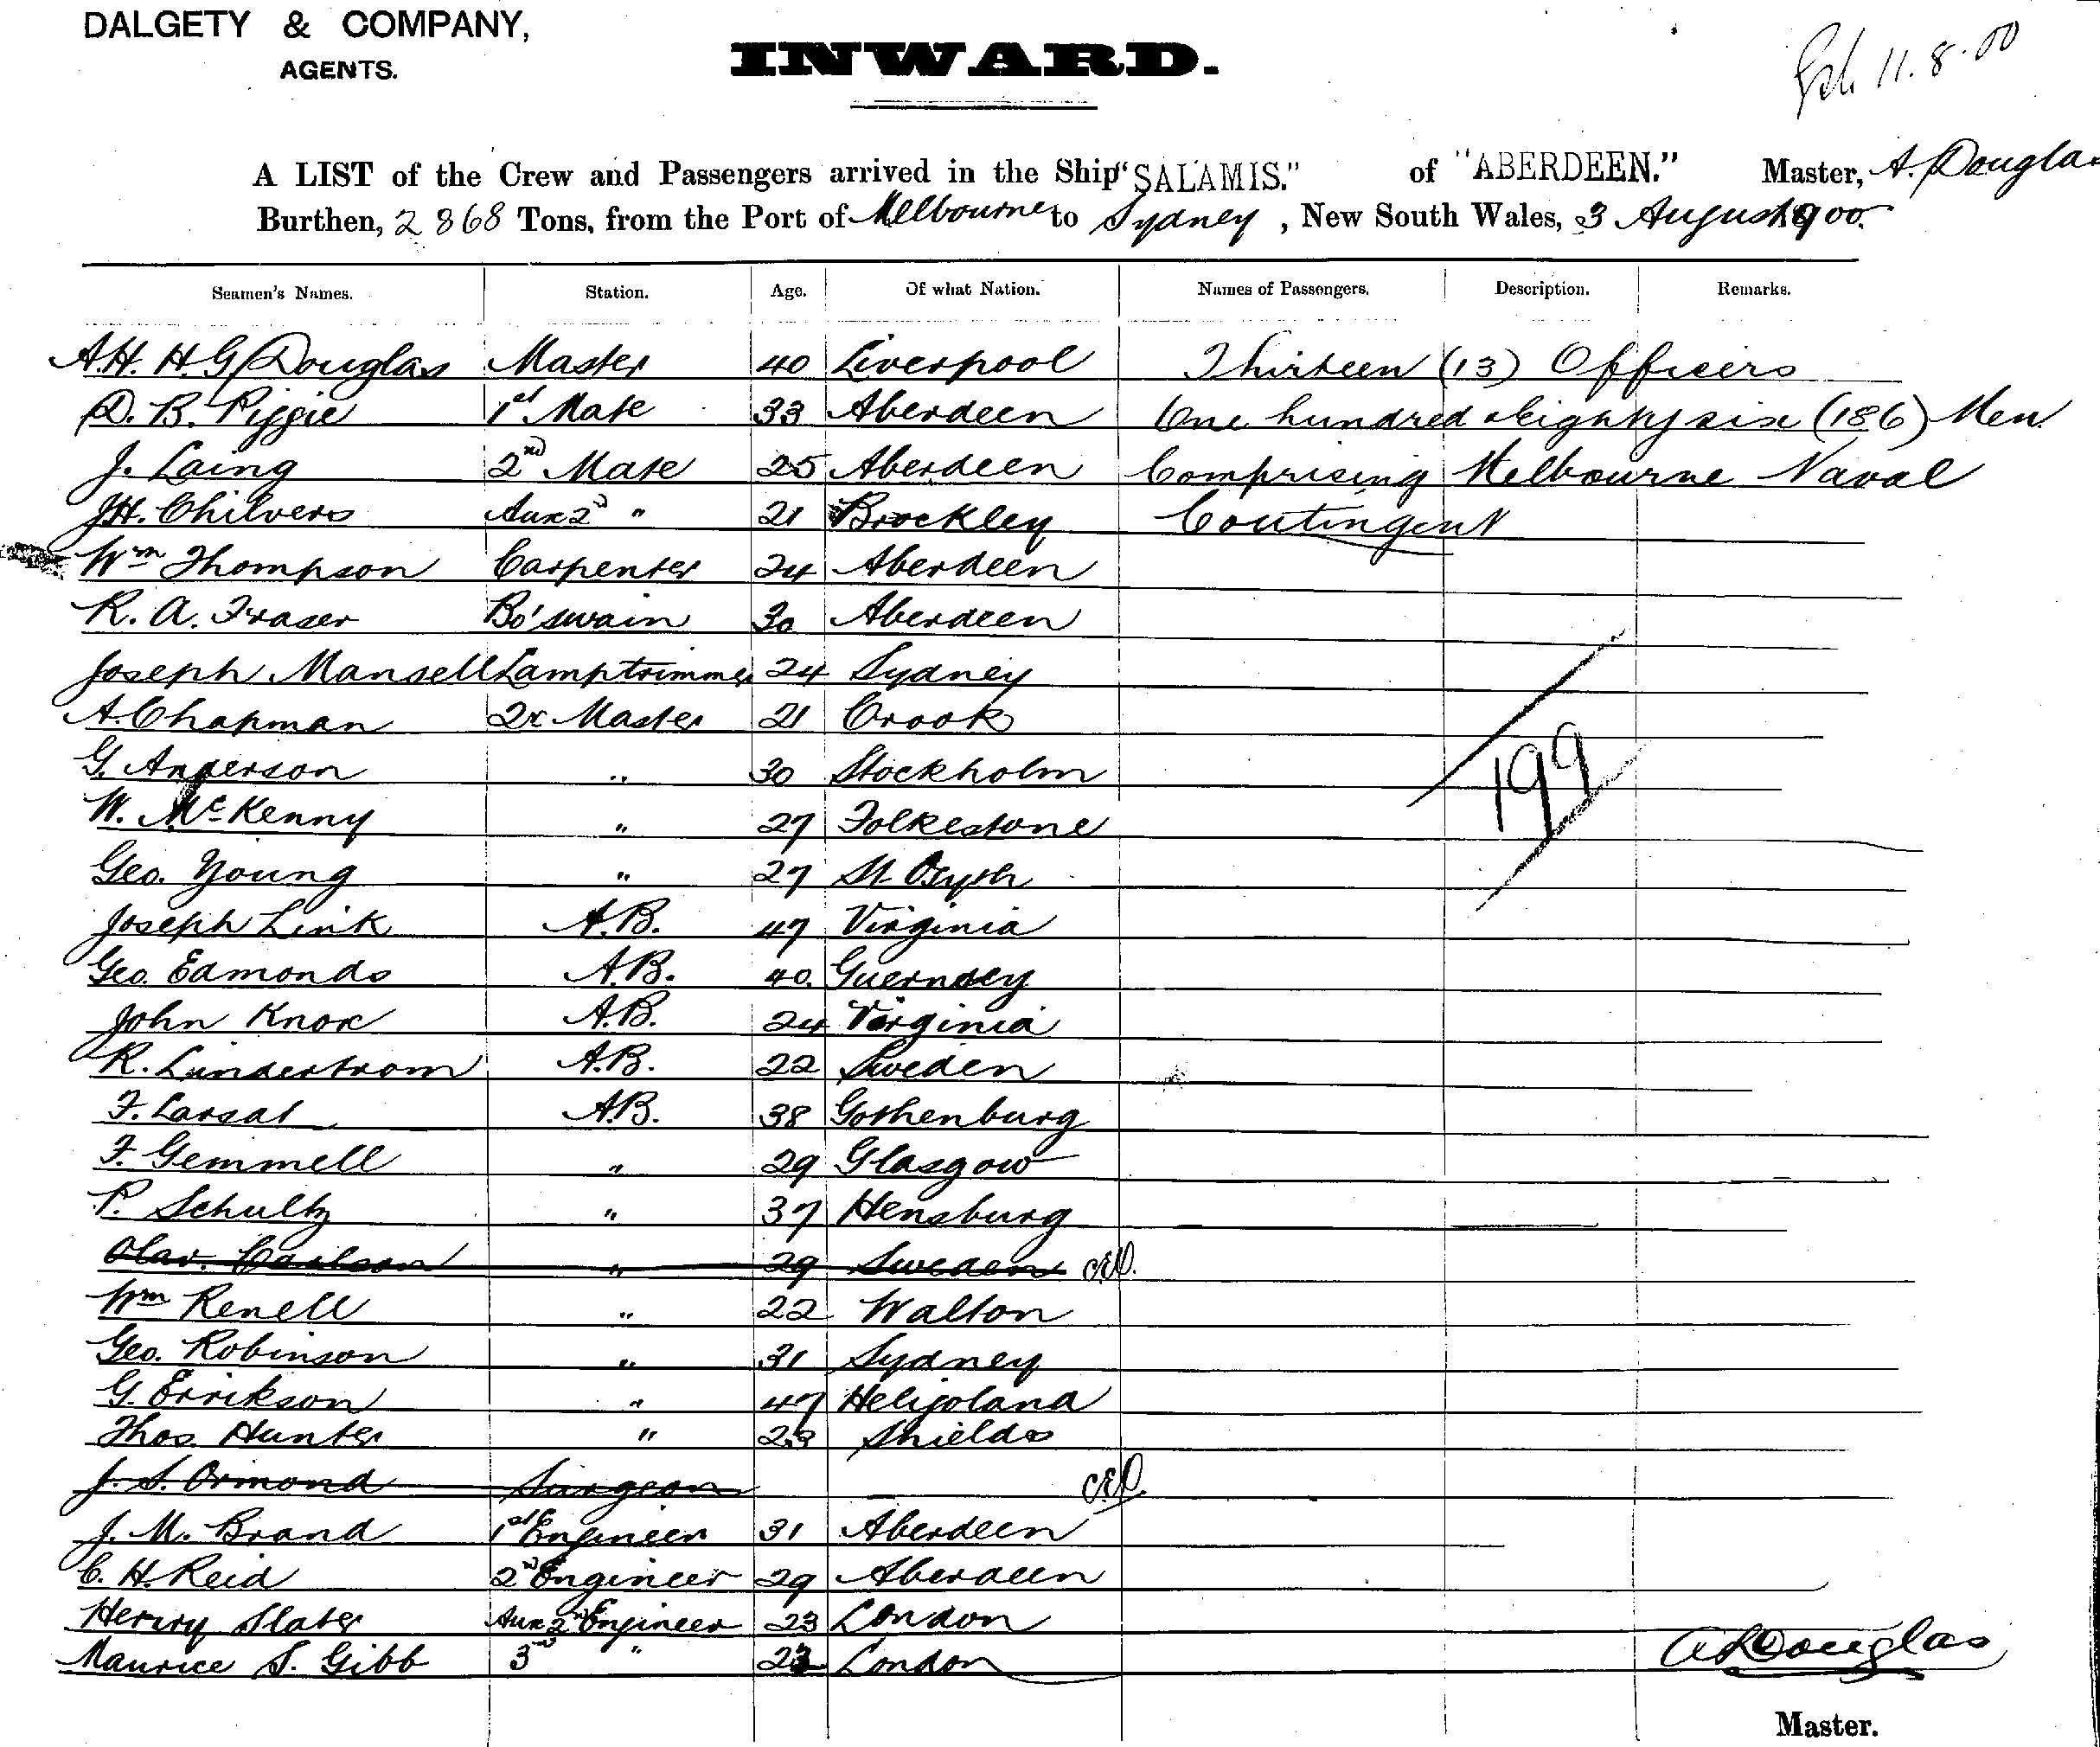 DALGETY & COMPANY,
AGENTS.
INWARD.
11.8.00
A LIST of the Crew and Passengers arrived in the Ship "SALAMIS." of "ABERDEEN." Master, A. Douglas
Burthen, 2868 Tons, from the Port of Melbourne to Sydney, New South Wales, 3 August 1900.
Seamen's Names. Station. Age. Of what Nation. Names of Passengers. Description. Remarks.
A.H. H.G. Douglas Master 40 Liverpool Thirteen (13) Officers
D. B. Piggie 1st Mate 33 Aberdeen One hundred & eighty six (186) Men
J. Laing 2nd Mate 25 Aberdeen Comprising Melbourne Naval
J.H. Chilvers Aux 2d " 21 Brockley Contingent
Wm Thompson Carpenter 24 Aberdeen
R. A. Fraser Bo'swain 30 Aberdeen
Joseph Mansell Lamptrimmer 24 Sydney
A. Chapman 2r Master 21 Crook
G. Anderson " 30 Stockholm
W. McKenny " 27 Folkestone
199
Geo. Young " 27 St. Osyth
Joseph Link A.B. 47 Virginia
Geo. Edmonds A.B. 40 Guernsey
John Knox A.B. 24 Virginia
R. Linderstrom A.B. 22 Sweden
F. Larsal A.B. 38 Gothenburg
F. Gemmell " 29 Glasgow
P. Schultz " 37 Hensburg
Olav. Carlson " 29 Sweden
Wm Renell " 22 Walton
Geo. Robinson " 31 Sydney
G. Errikson " 47 Heligoland
Thos. Hunter " Shields
J. S. Ormond Surgeon
J. M. Brand 1st Engineer 31 Aberdeen
C. H. Reid 2nd Engineer 29 Aberdeen
Henry Slater Aux 2nd Engineer 23 London
Maurice S. Gibb 3rd " 23 London
A Douglas
Master.